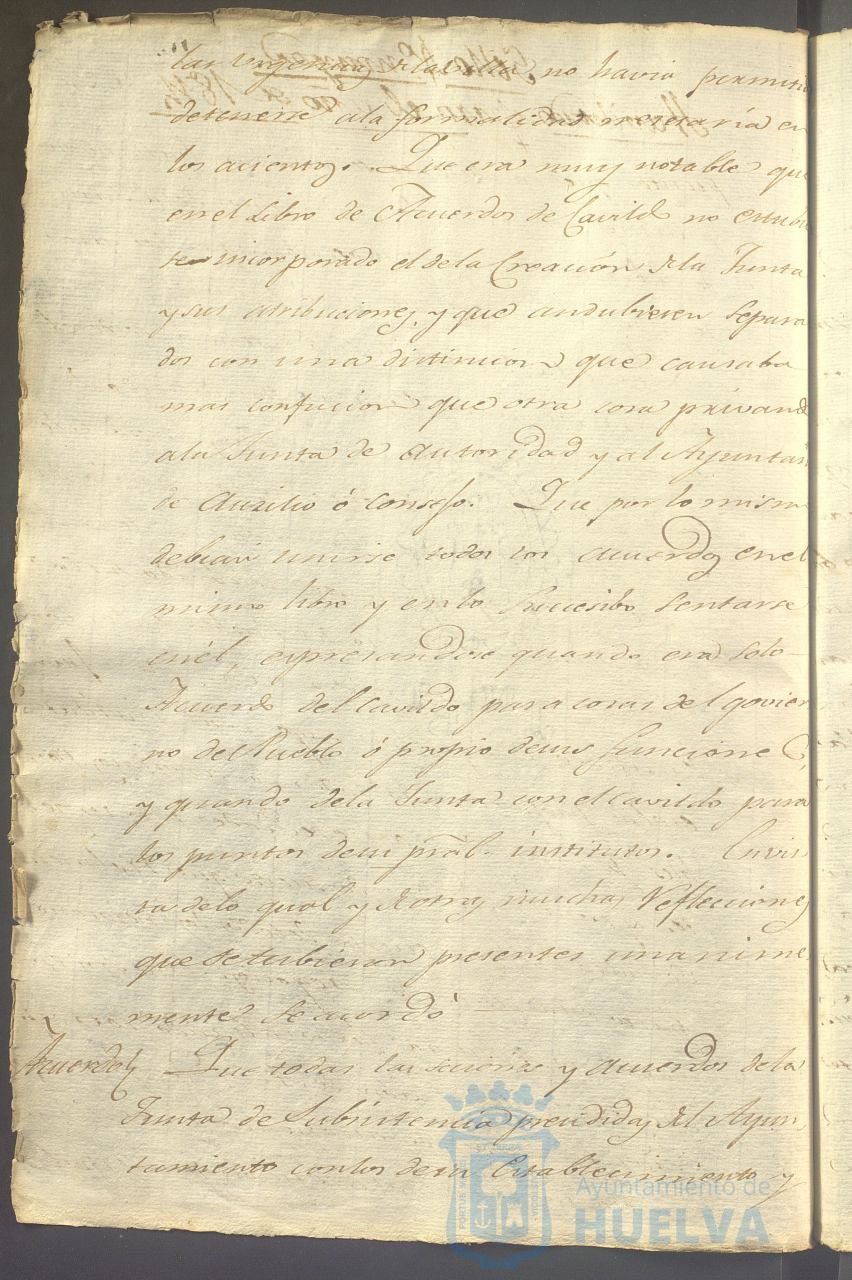 las urgencias de la villa no havia permitido
detenerse a la formalidad necesaria en
los acientos. Que era muy notable que
en el Libro de Acuerdos de Cavildo no estubie
se incorporado el de la Creacion de la Junta
y sus atribuciones, y que andubiesen separa
dos con una distincion que causaba
mas confucion que otra cosa privando
a la Junta de autoridad y al Ayuntam
de Auxilio ó Consejo. Que por lo mismo
debian unirse todos los acuerdos en el
mismo libro y en lo Succesibo sentarse
en él, expresandose quando era solo
Acuerdo del Cavildo para cosas del govier
no del Pueblo ó propio de sus funciones,
y quando de la Junta con el Cavildo para
los puntos de su pral. institutos. En vis
ta de lo qual y de otras muchas Reflecciones
que se tubieron presentes unanime
mente se acordó
Acuerdo Que todas las seciones y acuerdos de la
Junta de Subsistencia presididas del Ayun
tamiento con los de su Establecimiento y
Ayuntamiento de
HUELVA